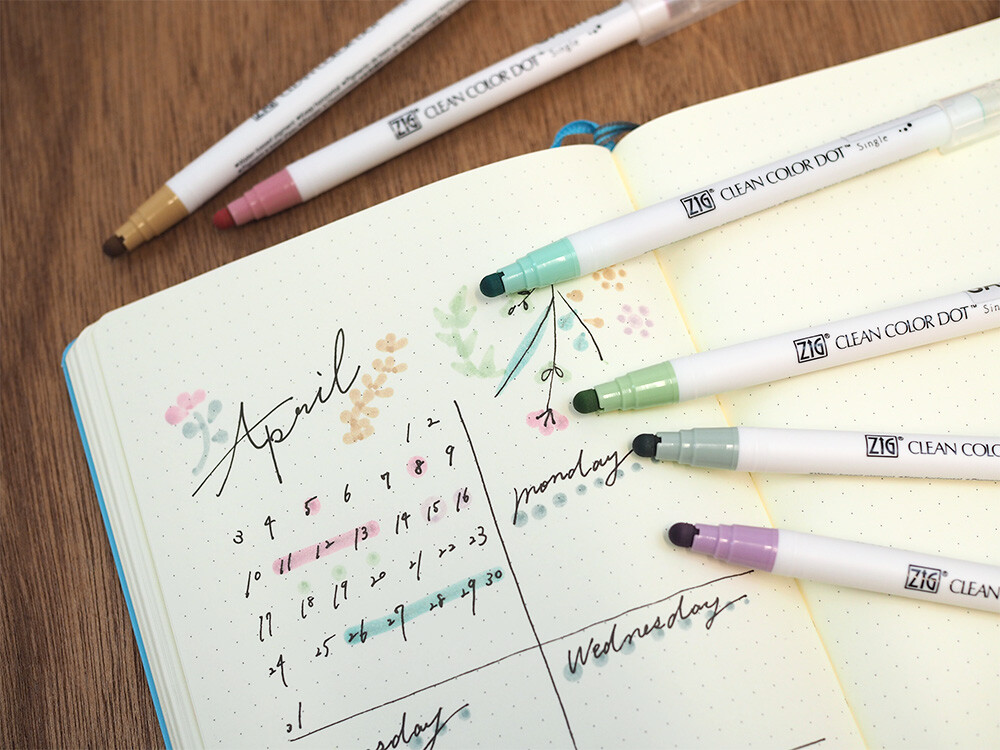 ZIG
ZIG® CLEAN COLOR DOT™ Single
ZIG® CLEAN COLOR DOT™ Single
ZIG® CLEAN COLOR DOT™ Sin
ZIG® CLEAN COLO
ZIG® CLEAN
April
1 2
3 4 5 6 7 8 9
10 11 12 13 14 15 16
17 18 19 20 21 22 23
24 25 26 27 28 29 30
31
monday
Wednesday
sday